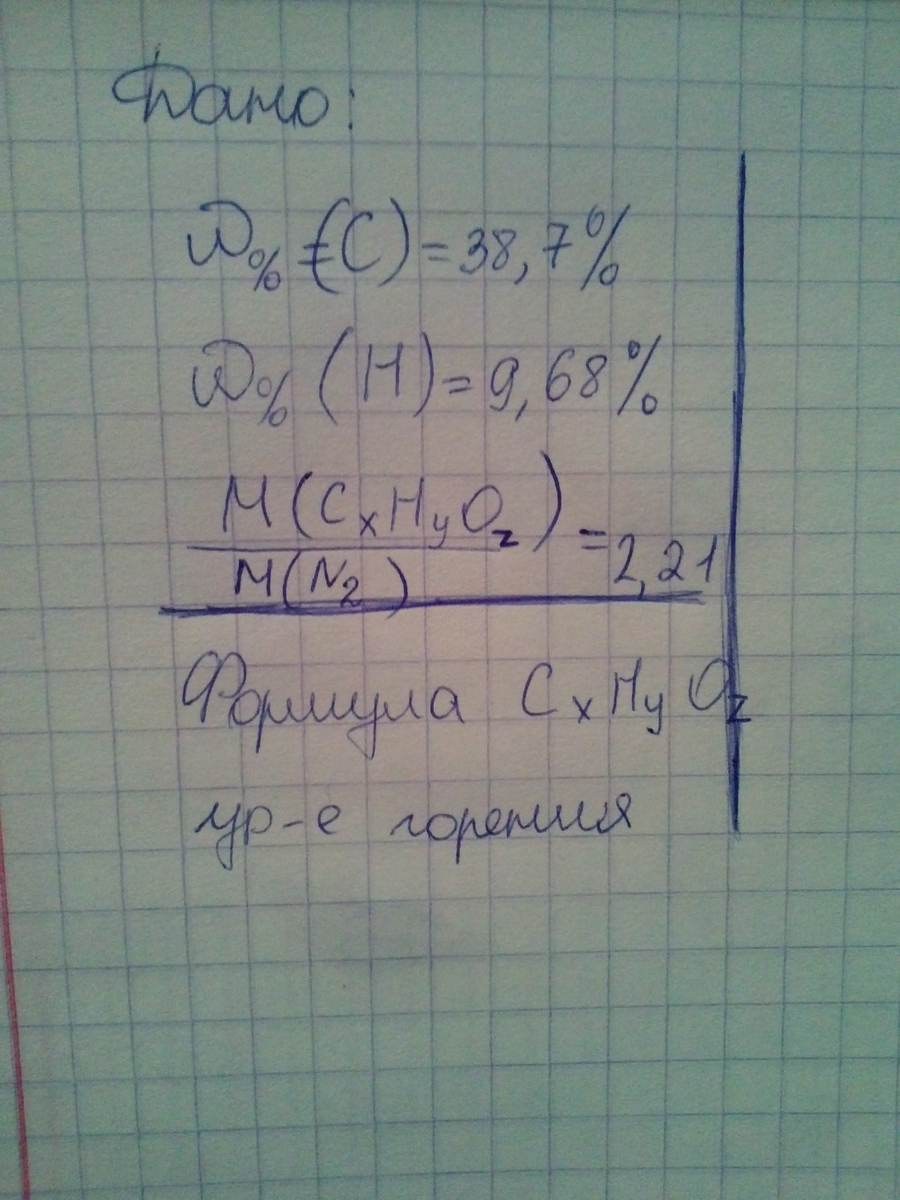 Дано:
W% (C) = 38,7%
W% (H) = 9,68%
M(CxHyOz)
M(N2)
= 2,21
Формула CxHyOz
ур-е горения